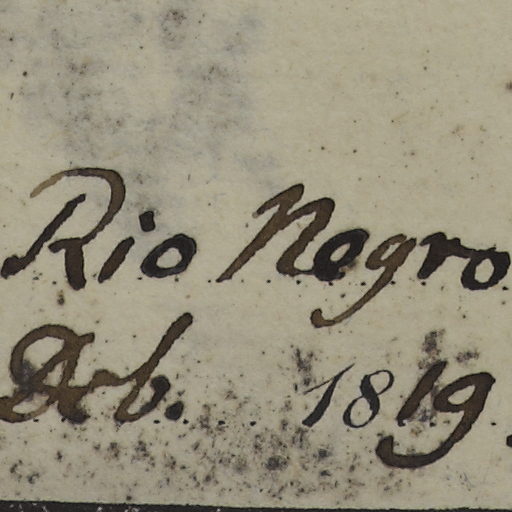 Rio Negro
Dcb. 1819.